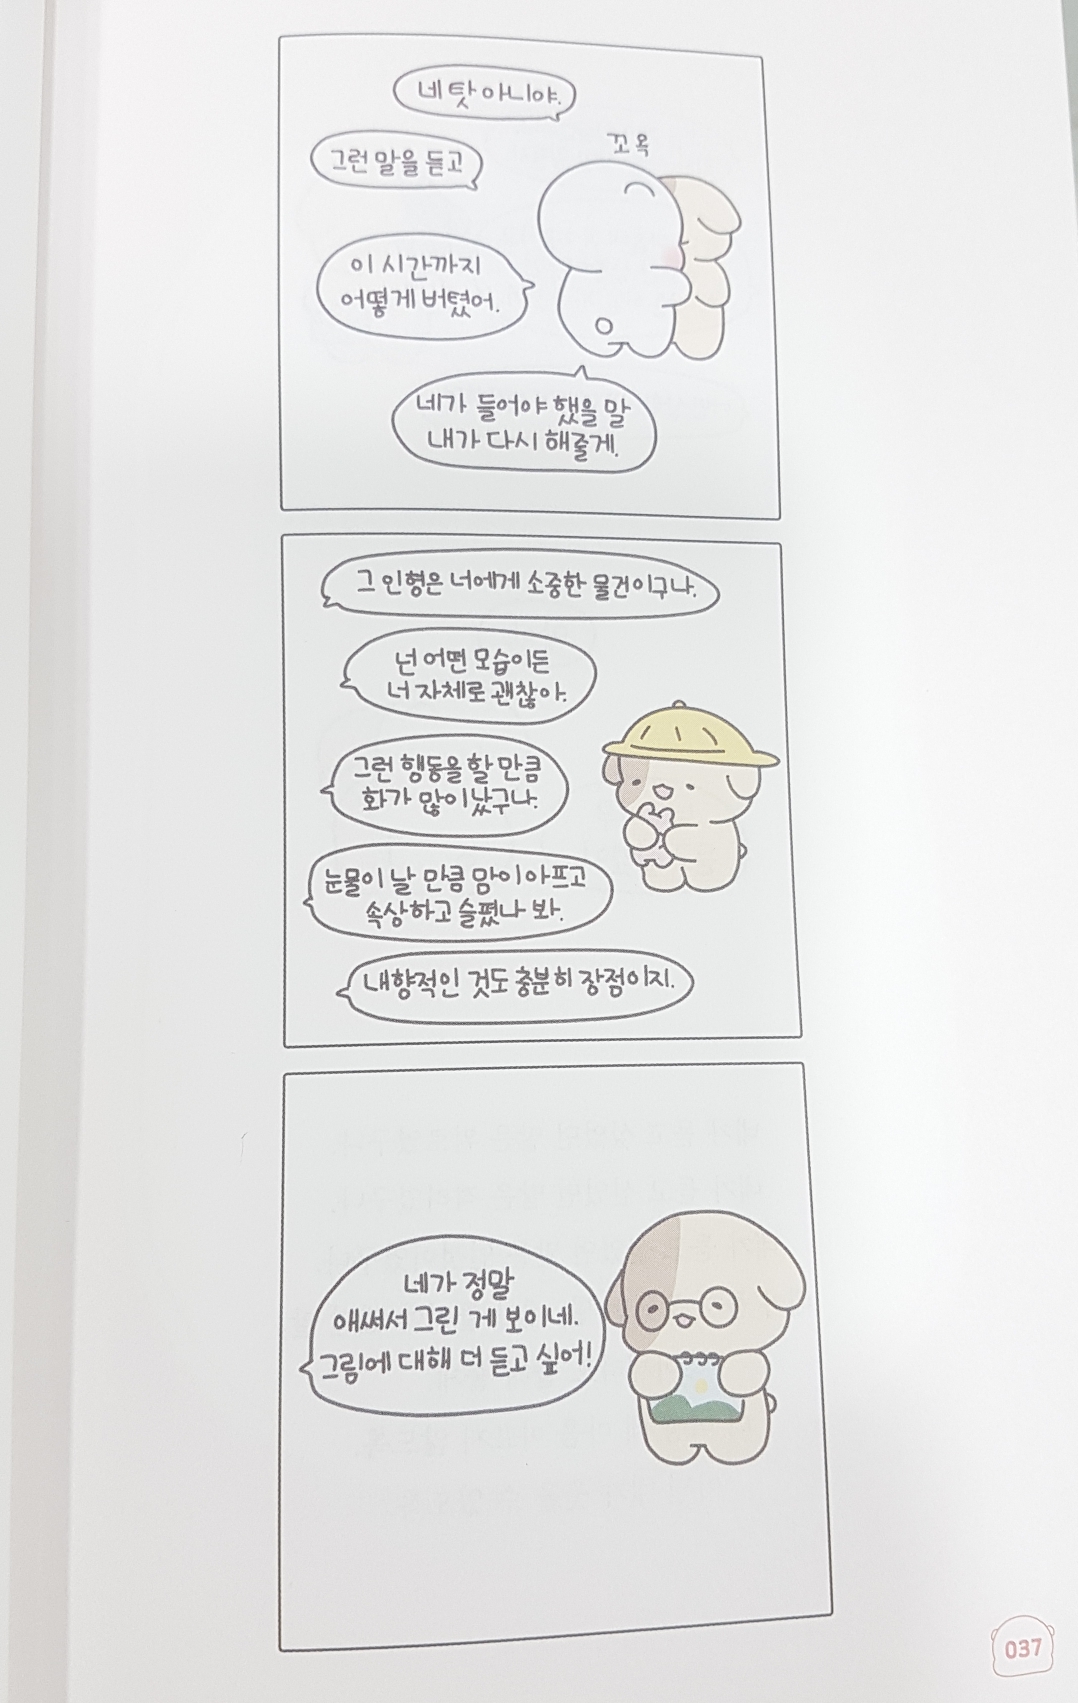 네 탓 아니야.
꼬옥
그런 말을 듣고
이 시간까지
어떻게 버텼어.
네가 들어야 했을 말
내가 다시 해줄게.
그 인형은 너에게 소중한 물건이구나.
넌 어떤 모습이든
너 자체로 괜찮아.
그런 행동을 할 만큼
화가 많이 났구나.
눈물이 날 만큼 맘이 아프고
속상하고 슬펐나 봐.
내향적인 것도 충분히 장점이지.
네가 정말
애써서 그린 게 보이네.
그림에 대해 더 듣고 싶어!
037